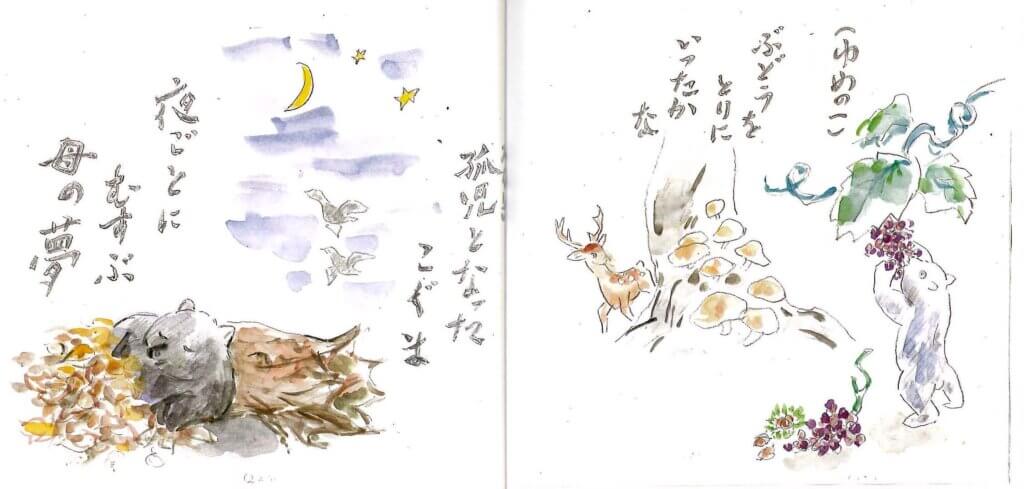 （ゆめの一）
ぶどうを
とりに
いったか
な
孤児となった
こぐま
夜ごとに
むすぶ
母の夢